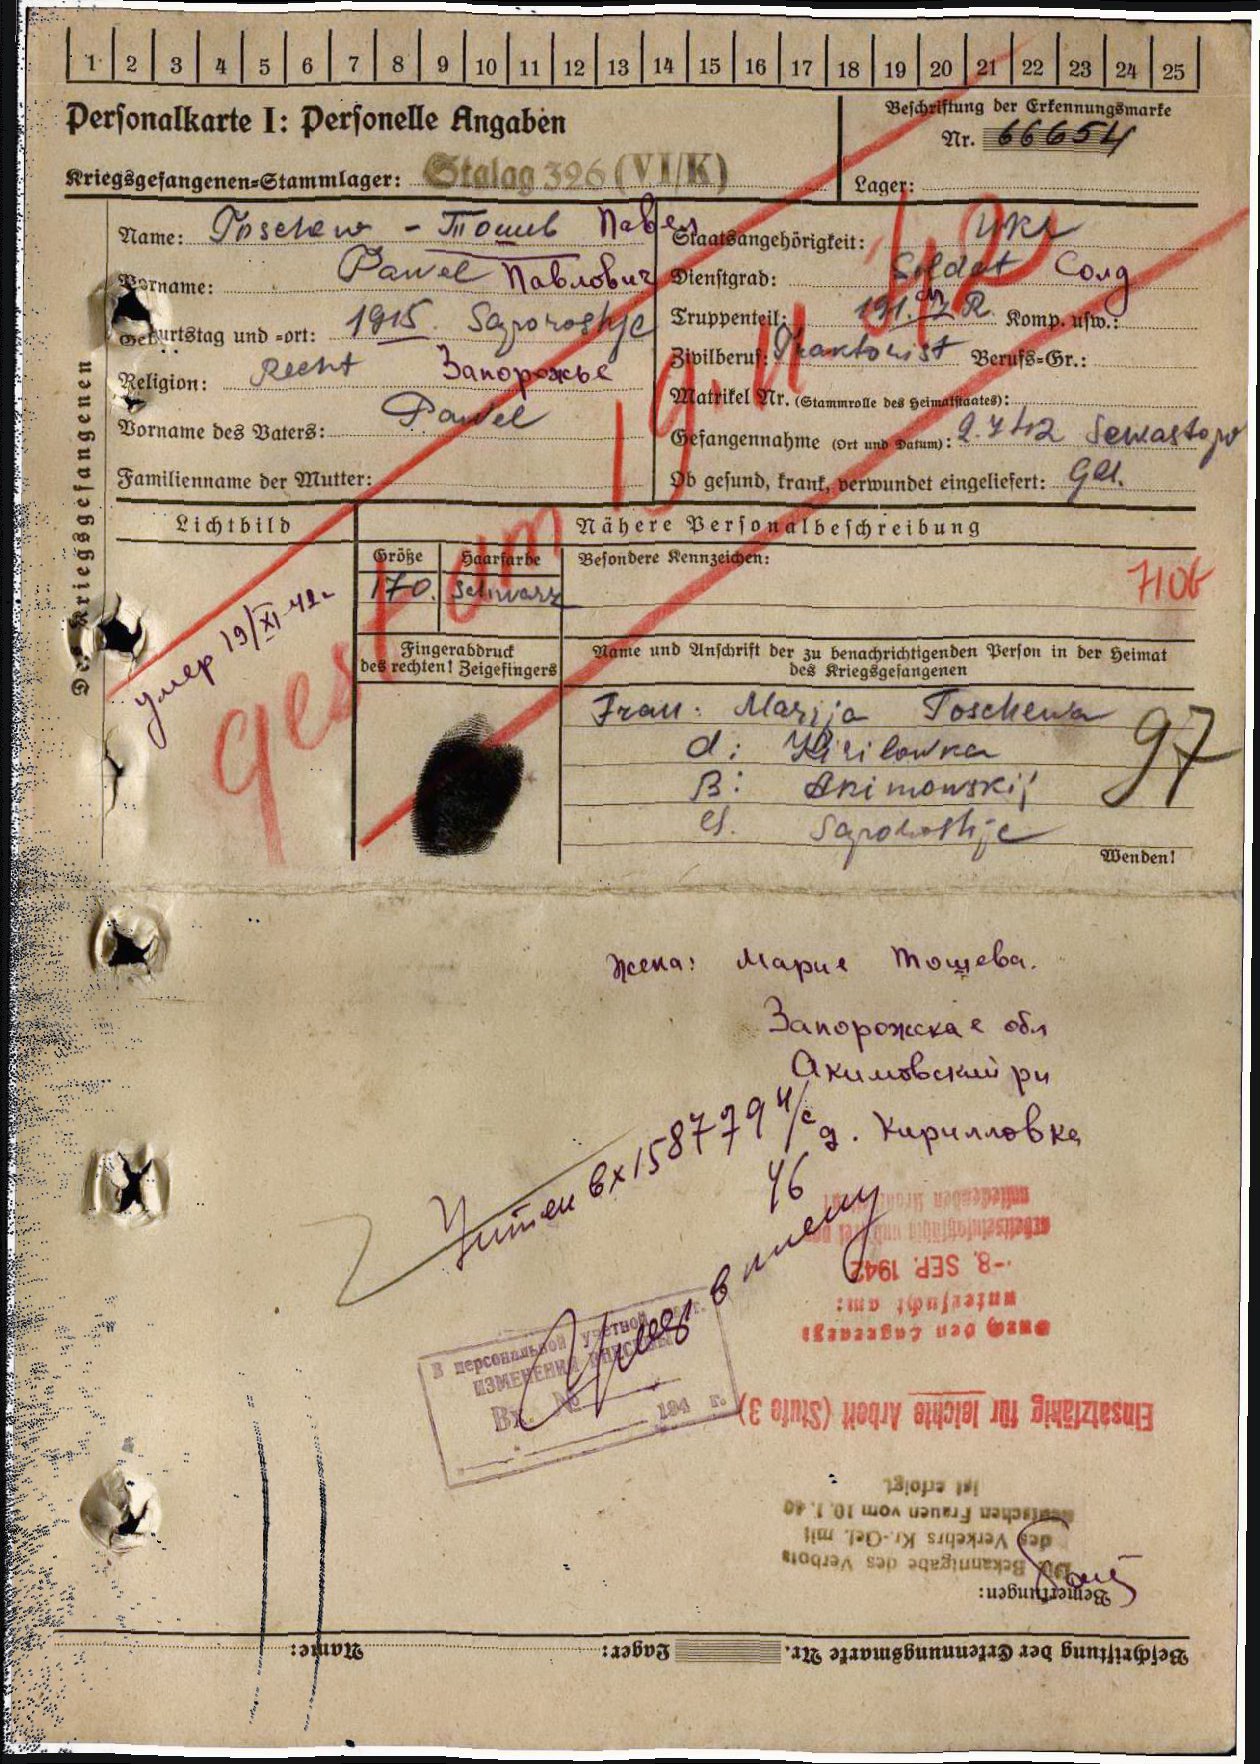 1 2 3 4 5 6 7 8 9 10 11 12 13 14 15 16 17 18 19 20 21 22 23 24 25
Personalkarte I: Personelle Angaben
Beschriftung der Erkennungsmarke
Nr. 66654
Kriegsgefangenen-Stammlager: Stalag 326 (VI/K)
Lager:
Des Kriegsgefangenen
Name: Toschew - Тошев Павел
Vorname: Pawel Павлович
Geburtstag und -ort: 1915. Saporoshje
Religion: Recht Запорожье
Vorname des Vaters: Pawel
Familienname der Mutter:
Staatsangehörigkeit: Ukr
Dienstgrad: Soldat Солд
Truppenteil: 191. R. Komp. usw.:
Zivilberuf: Traktorist Berufs-Gr.:
Matrikel Nr. (Stammrolle des Heimatstaates):
Gefangennahme (Ort und Datum): 2.7.42 Sewastopo
Ob gesund, krank, verwundet eingeliefert: Ges.
gest am 19.11.42
Lichtbild
Nähere Personalbeschreibung
Größe
Haarfarbe
Besondere Kennzeichen:
170. Schwarz
7106
умер 19/XI-42г
Fingerabdruck
des rechten! Zeigefingers
Name und Anschrift der zu benachrichtigenden Person in der Heimat
des Kriegsgefangenen
Frau: Marija Toschewa
d: Kirilowka
B: Akimowskij
G. Saporoshje
97
Wenden!
Жена: Марие Тошева.
Запорожская обл
Акимовский рн
д. Кирилловка
Учтен вх 158779 ч/с
46
Умер в плену
В персональной учетной
ИЗМЕНЕНИЯ ВНЕСЕНЫ
Вх. №
194 г.
untersucht am:
-8. SEP. 1942
Einsatzfähig für leichte Arbeit (Stufe 3)
Bemerkungen:
Die Bekanntgabe des Verbots
des Verkehrs Kr.-Gef. mit
deutschen Frauen vom 10. 1. 40
ist erfolgt.
Beschriftung der Erkennungsmarke Nr. Lager: Name: